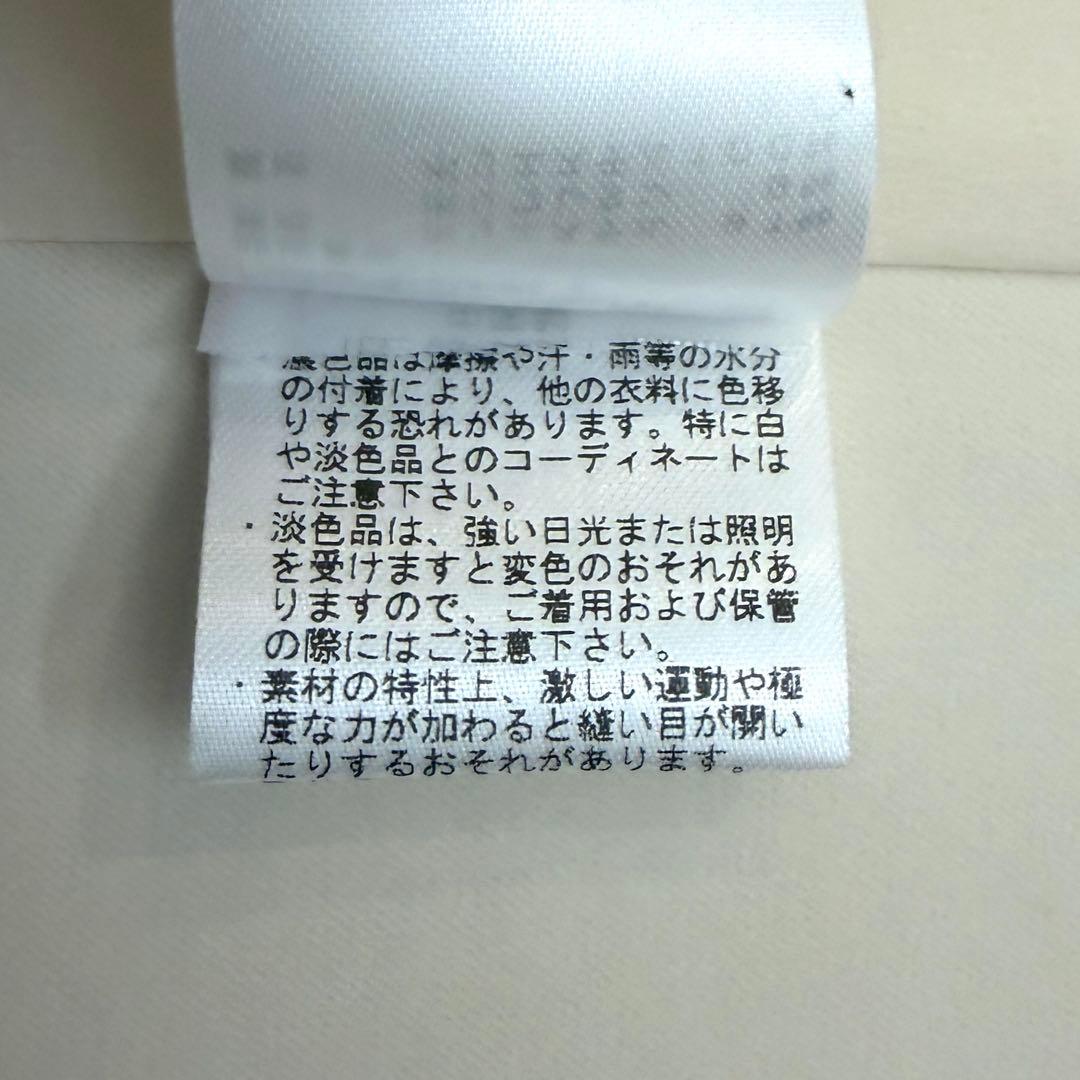 濃色品は摩擦や汗・雨等の水分
の付着により、他の衣料に色移
りする恐れがあります。特に白
や淡色品とのコーディネートは
ご注意下さい。
・淡色品は、強い日光または照明
を受けますと変色のおそれがあ
りますので、ご着用および保管
の際にはご注意下さい。
・素材の特性上、激しい運動や極
度な力が加わると縫い目が開い
たりするおそれがあります。